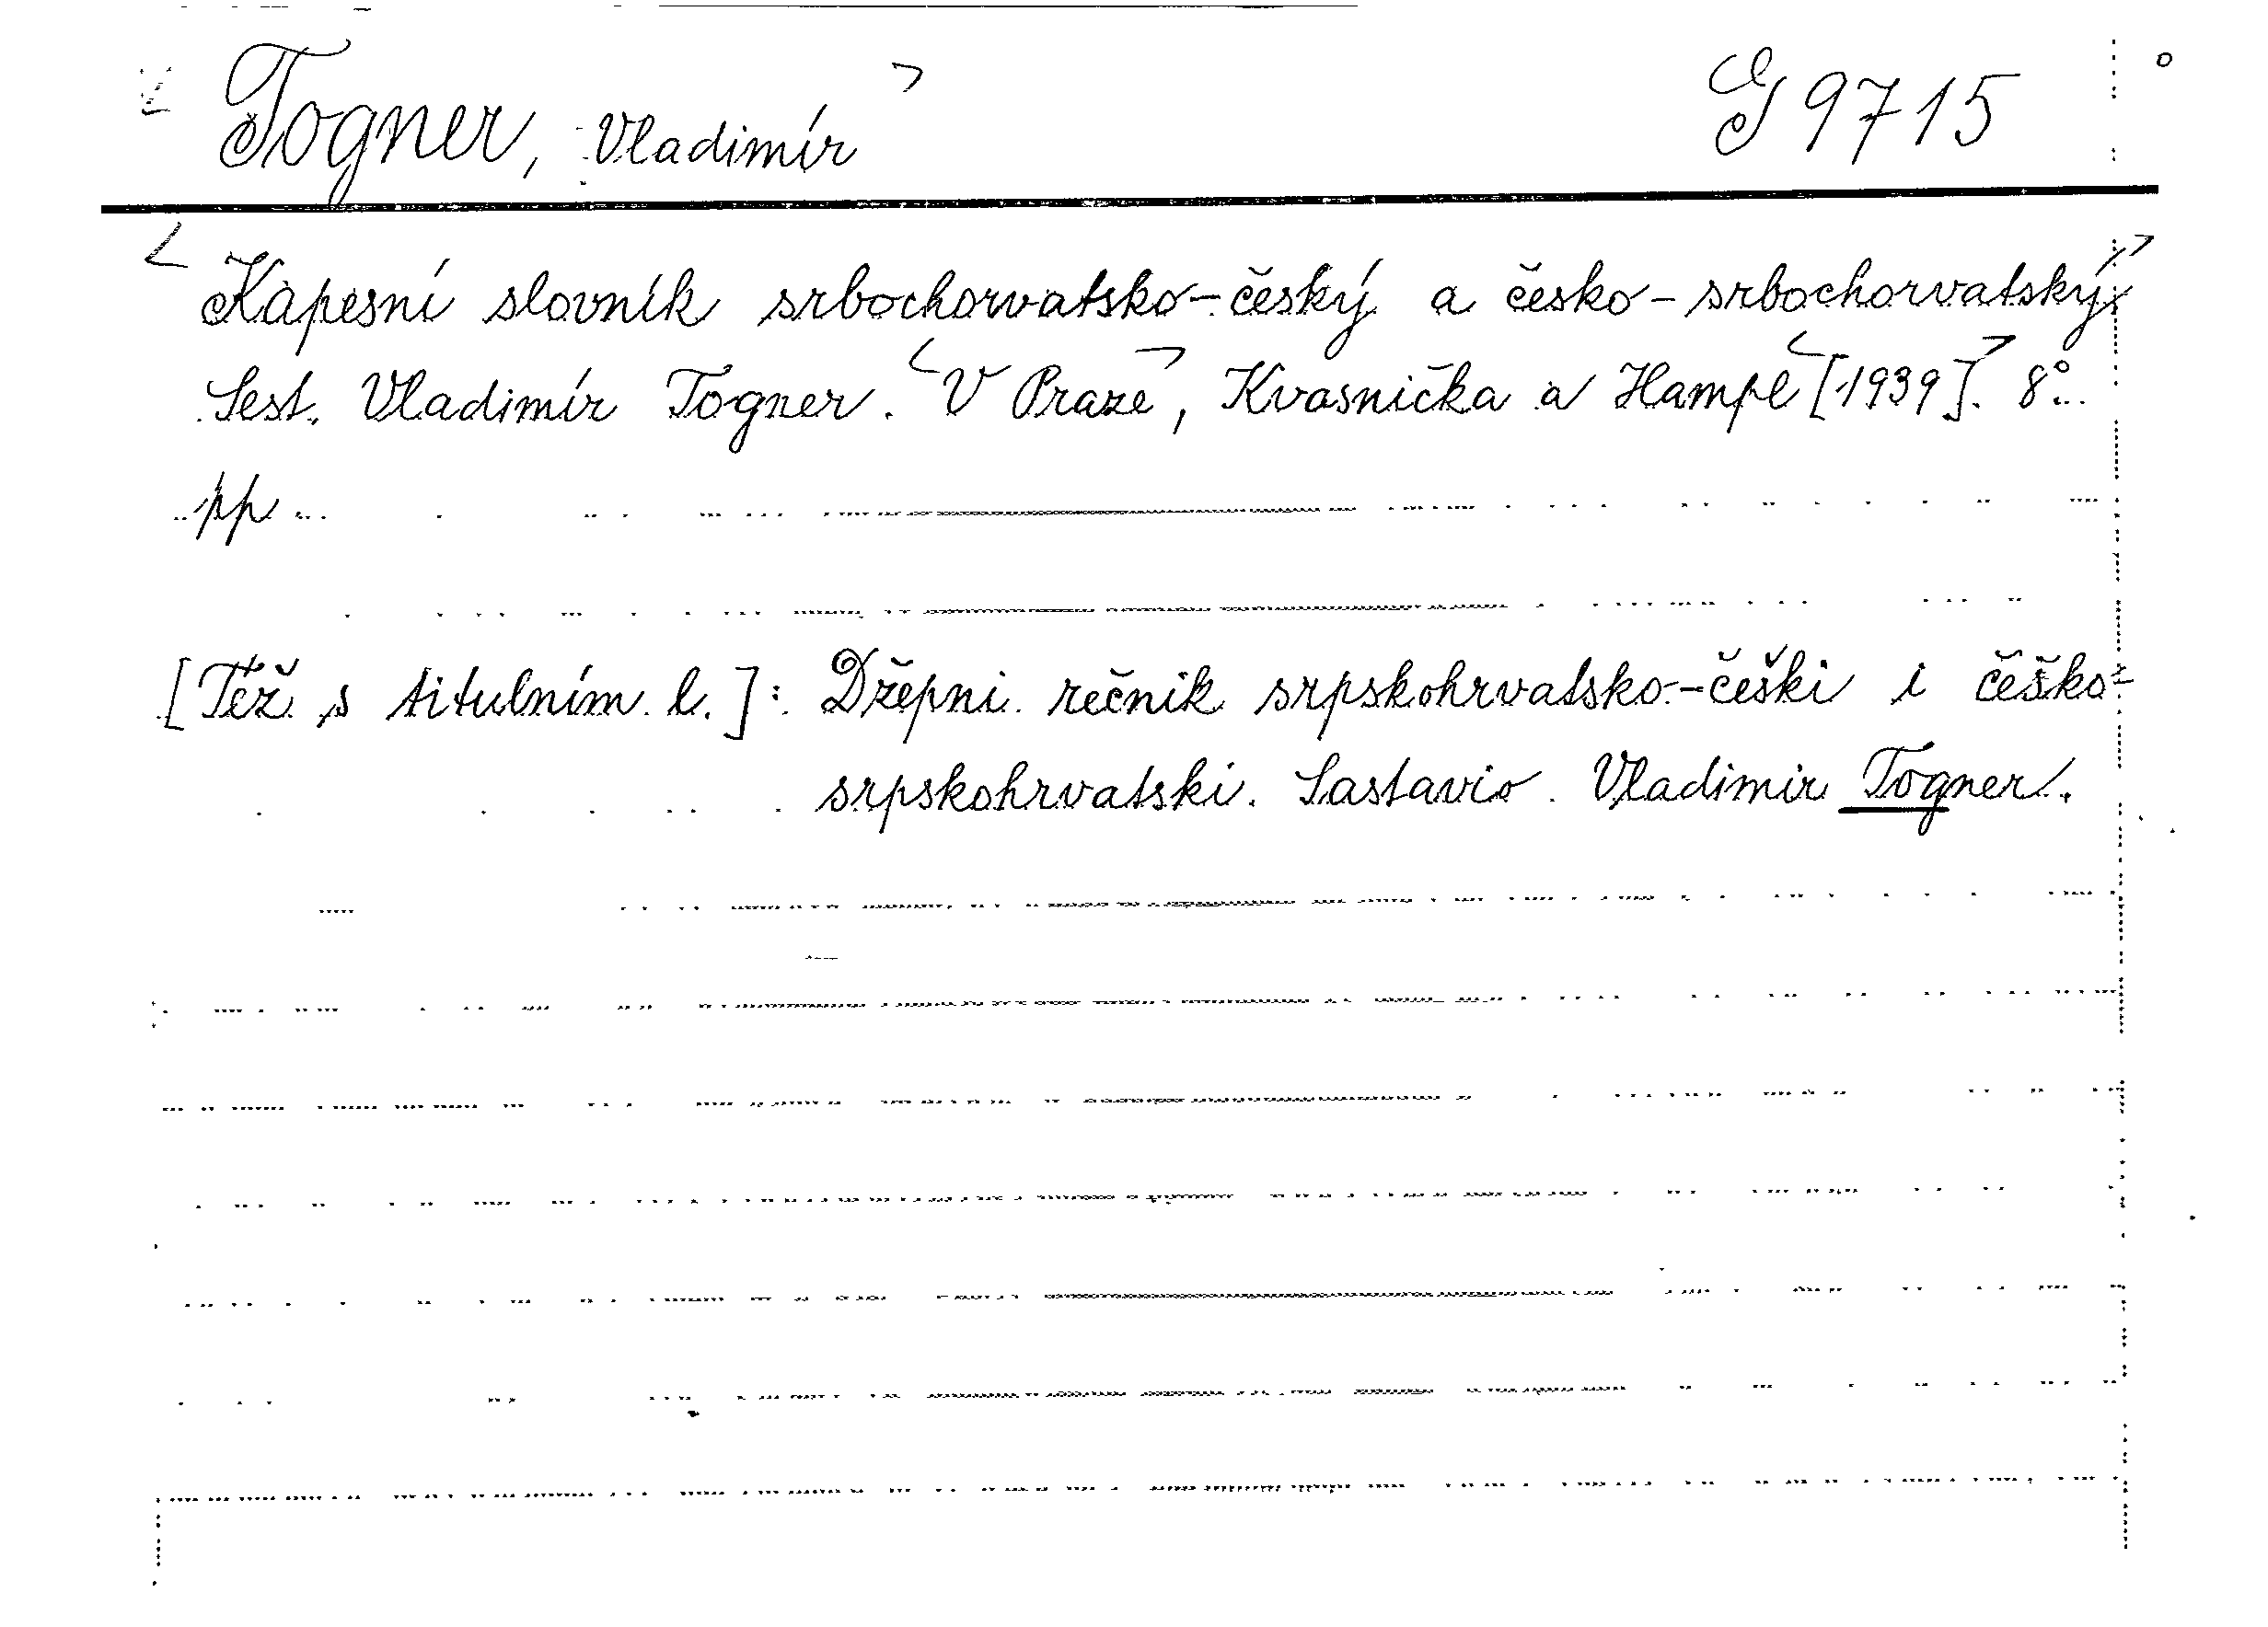 Togner, Vladimír G 9715
Kapesní slovník srbochorvatsko-český a česko-srbochorvatský.
Sest. Vladimír Togner. V Praze, Kvasnička a Hampl [1939]. 8°.
pp
[Též s titulním l.]: Džepni rečnik srpskohrvatsko-češki i češko-
srpskohrvatski. Sastavio Vladimir Togner.